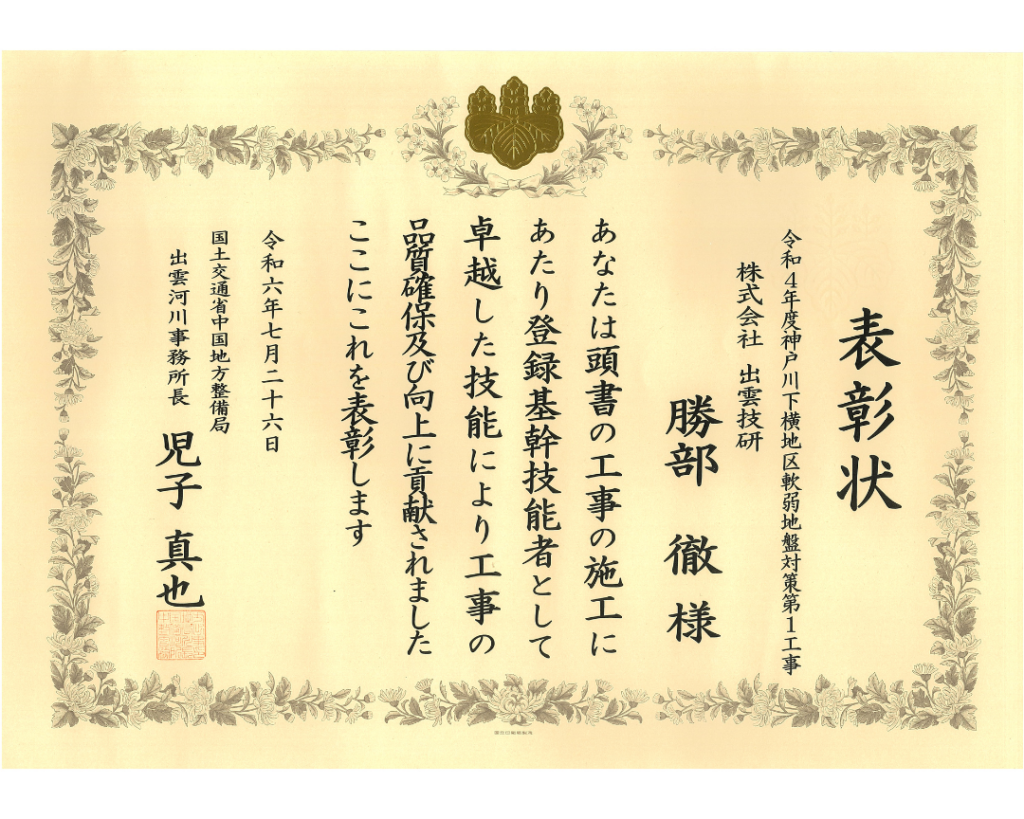 表彰状
令和4年度神戸川下横地区軟弱地盤対策第1工事
株式会社 出雲技研
勝部 徹 様
あなたは頭書の工事の施工に
あたり登録基幹技能者として
卓越した技能により工事の
品質確保及び向上に貢献されました
ここにこれを表彰します
令和六年七月二十六日
国土交通省中国地方整備局
出雲河川事務所長
児子 真也